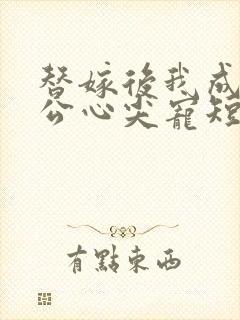 替嫁後我成
公心尖寵短
有點東西